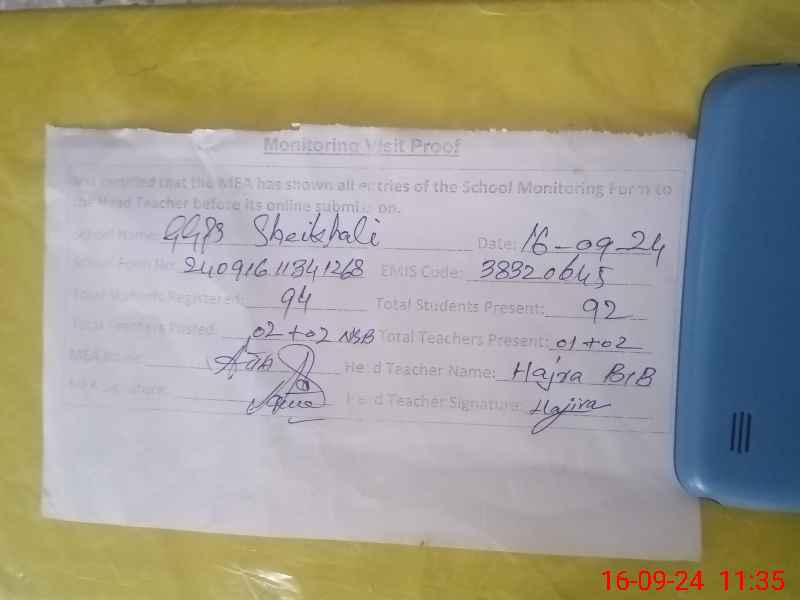 Monitoring Visit Proof
and certified that the MEA has shown all entries of the School Monitoring Form to
the Head Teacher before its online submission.
School Name: GGPS Sheikhali Date: 16-09-24
School Form No: 240916.11341268 EMIS Code: 38320645
Total Students Registered: 94 Total Students Present: 92
Total Teachers Posted: 02+02 NSB Total Teachers Present: 01+02
MEA Name: Head Teacher Name: Hajra BiB
MEA Signature: Head Teacher Signature: Hajira
16-09-24 11:35